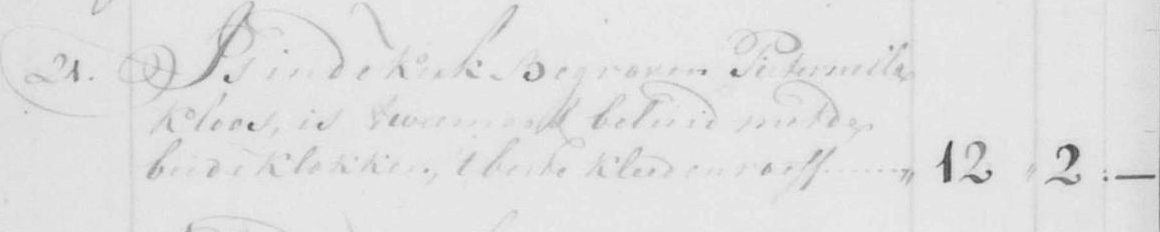 21. Is in de Kerk Begraven Pieternella
Kloos, is tweemaal beluid met de
beide klokken, 't beste kleed en roeff ......„ 12 „ 2 : —